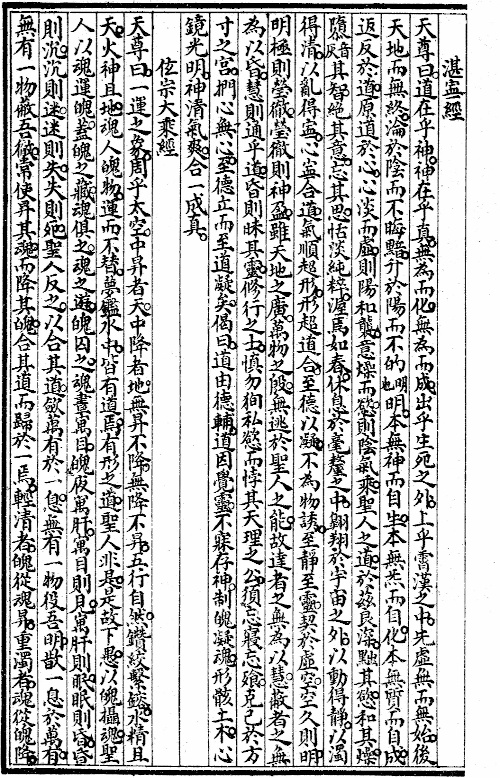 湛寍經
天尊曰道在乎神神在乎真無為而化無為而成出乎生死之外上乎霄漢之中先虛無而無始後
天地而無終淪於陰而不晦黯升於陽而不的明也明本無神而自生本無炁而自化本無質而自成
返反於道原道於心心淡而虛則陽和襲意燥而慾則陰氣乘聖人之道於茲良深黜其慾和其燥
隳其智絕其意忘其思恬淡純粹渥焉如春休息於毫釐之中翱翔於宇宙之外以動得靜以濁
得清以亂得寍心寍合道氣順超形形超道合至德以凝不為物誘至靜至靈契於虛空空久則明
明極則瑩徹瑩徹則神盈雖天地之廣萬物之殷無逃於聖人之能故達者之無為以慧蔽者之無
為以昏慧則通乎道昏則昧其靈修行之士慎勿徇私慾而悖其天理之公須忘寢忘飧克己於方
寸之宮捫心無心至德立而至道凝矣偈曰道由德輔道因覺靈不寐存神制魄凝魂形骸土木心
鏡光明神清氣爽合一成真
位宗大乘經
天尊曰一運之象周乎太空中昇者天中降者地無昇不降無降不昇五行自然鑽絞繫鎰水精且
天火神且地魂人魄物運而不替夢鑑水中皆有道焉有形之道聖人非是是故下愚以魄攝魂聖
人以魂運魄蓋魄之藏魂俱之魂之遊魄囚之魂晝寓目魄夜寓肝寓目則見寓肝則眠眠則昏昏
則沉沉則迷迷則失失則死聖人反之以合其道斂萬有於一息無有一物役吾明散一息於萬有
無有一物蔽吾徹常使昇其魂而降其魄合其道而歸於一焉輕清者魄從魂昇重濁者魂從魄降